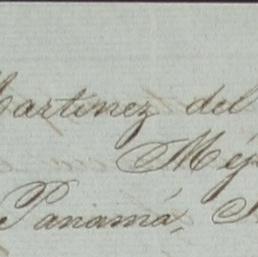 Martinez del
Méj
Panamá,